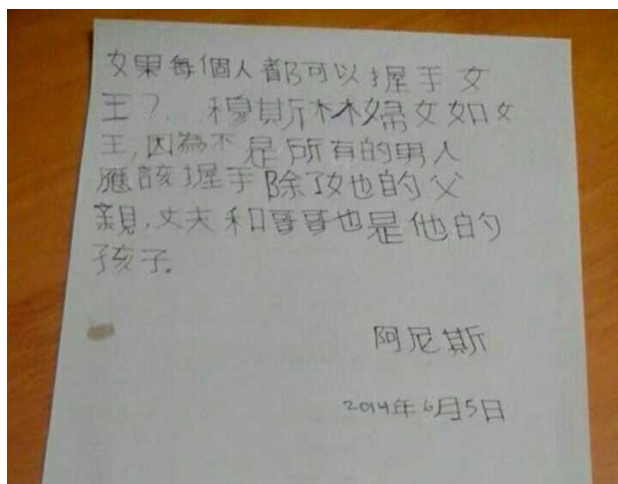 如果每個人都可以握手女
王?. 穆斯林婦女如女
王,因為不是所有的男人
應該握手除了她的父
親,丈夫和哥哥也是他的
孩子.
阿尼斯
2014年6月5日